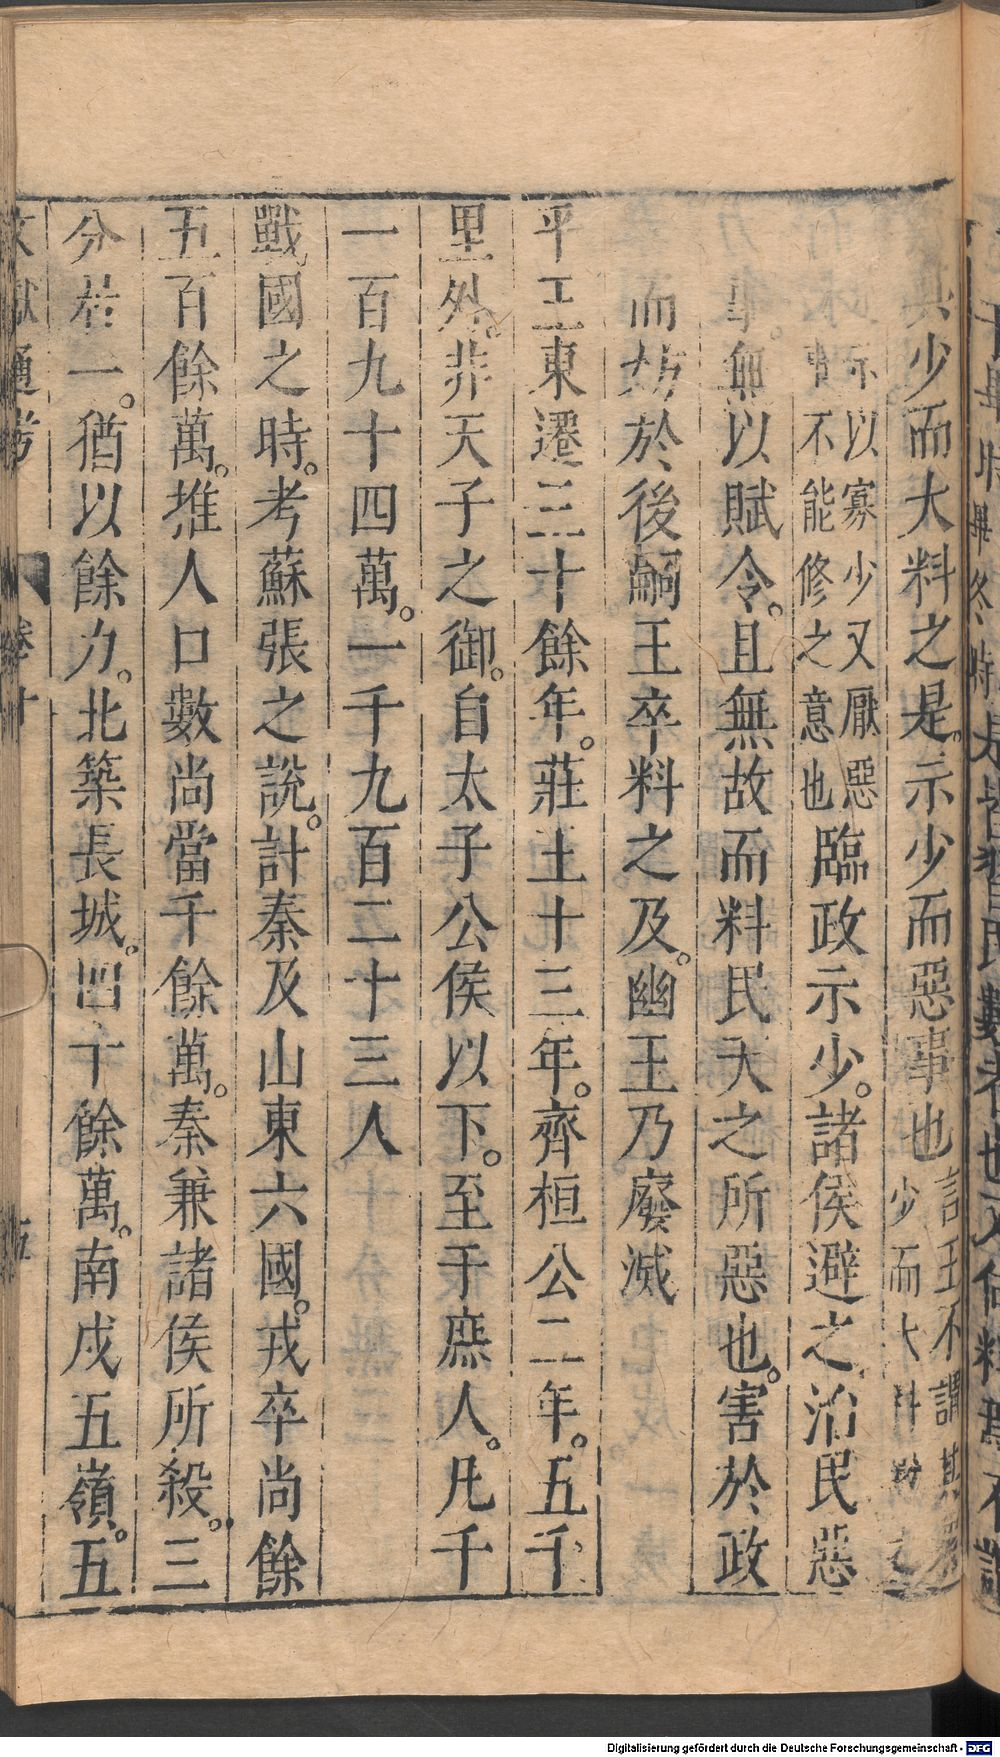 其少而大料之是。示少而惡事也言王不謂其少而大料
示以寡少又厭惡事不能修之意也臨政示少。諸侯避之治民惡
事。無以賦令。且無故而料民天之所惡也。害於政
而妨於後嗣王卒料之及。幽王乃廢滅
平王東遷三十餘年。莊王十三年。齊桓公二年。五千
里外。非天子之御。自太子公侯以下。至于庶人。凡千
一百九十四萬。一千九百二十三人
戰國之時。考蘇張之說。計秦及山東六國。戎卒尚餘
五百餘萬。推人口數尚當千餘萬。秦兼諸侯所殺。三
分居一。猶以餘力。北築長城。四十餘萬。南戍五嶺。五
文獻通考 卷十 五
Digitalisierung gefördert durch die Deutsche Forschungsgemeinschaft - DFG